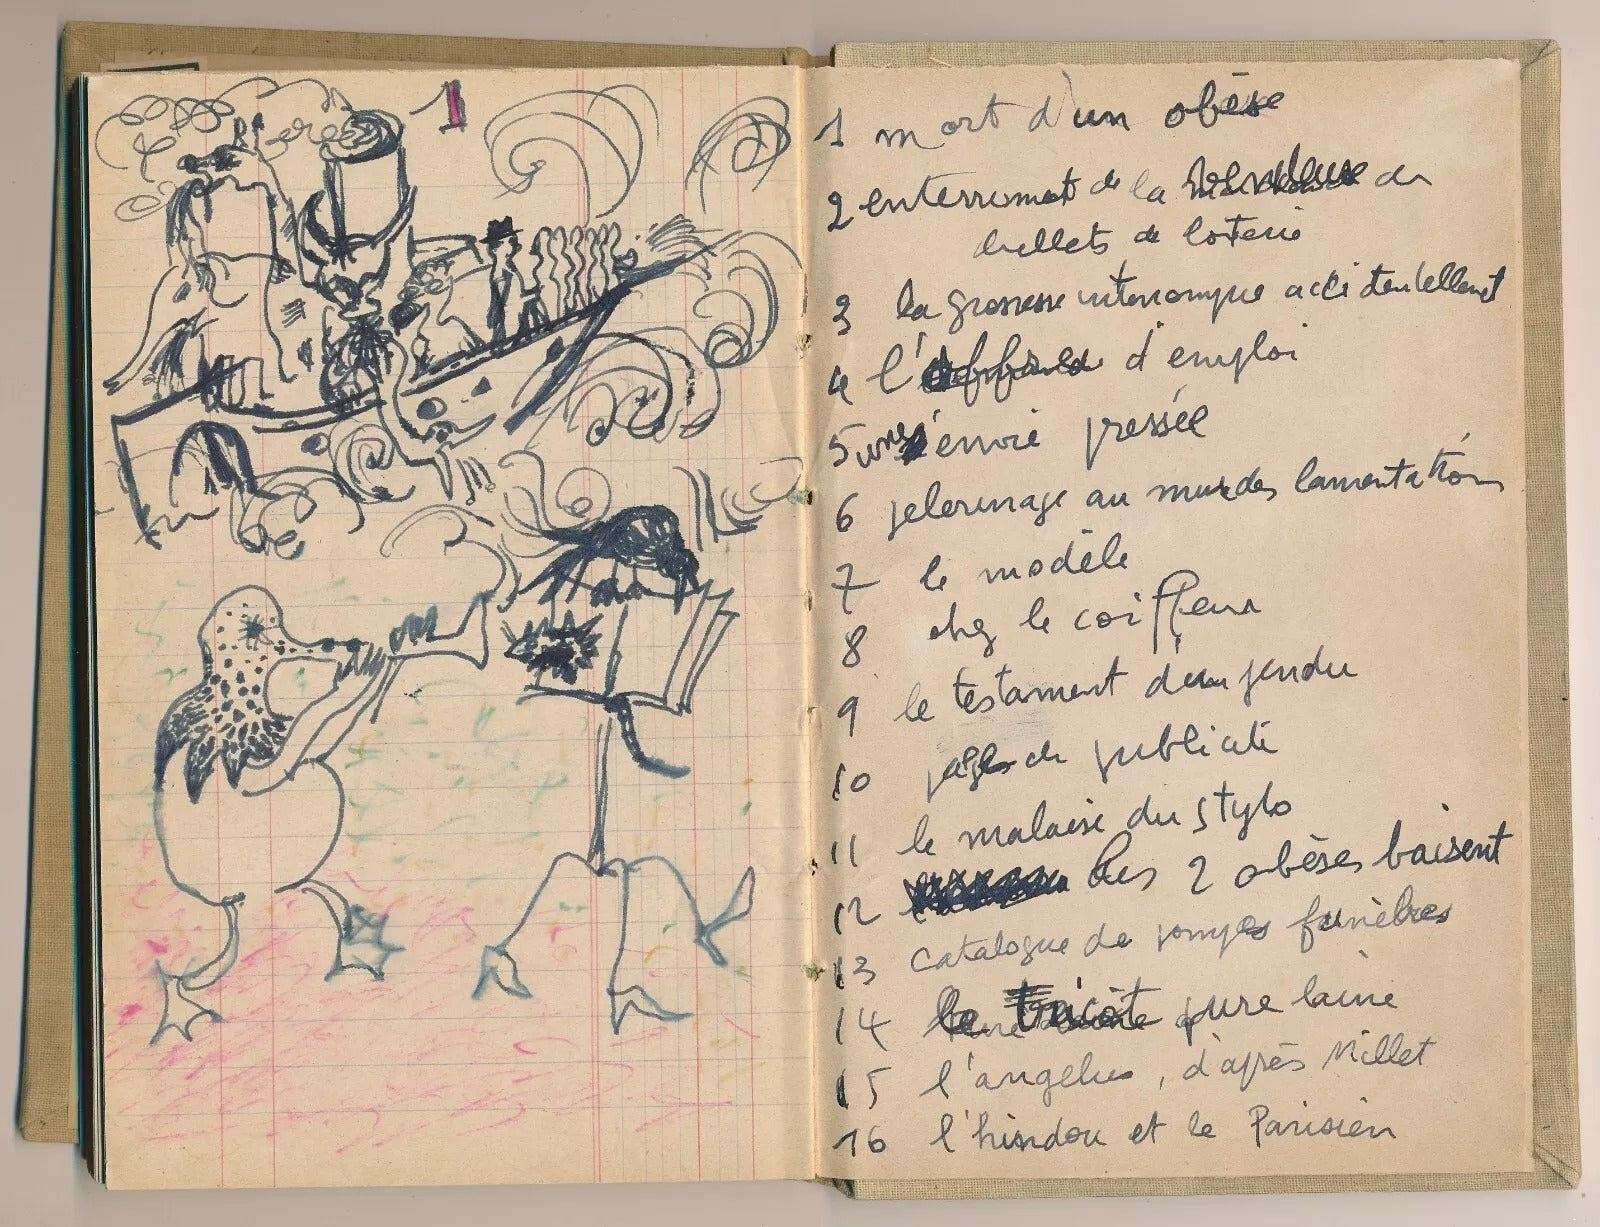 1
1 mort d'un obèse
2 enterrement de la vendeuse de
billets de loterie
3 la grossesse interrompue accidentellement
4 l' d'emploi
5 envie pressée
6 pelerinage au mur des lamentations
7 le modèle
8 chez le coiffeur
9 le testament d'un pendu
10 pages de publicité
11 le malaise du stylo
12 les 2 obèses baisent
13 catalogue de pompes funèbres
14 le tricot pure laine
15 l'angelus, d'après Millet
16 l'hindou et le Parisien